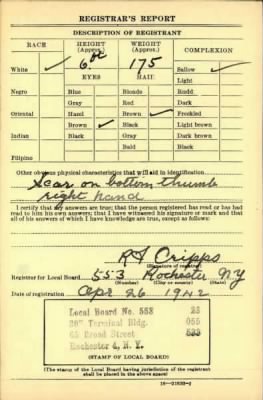 REGISTRAR'S REPORT
DESCRIPTION OF REGISTRANT
RACE HEIGHT (Approx.) WEIGHT (Approx.) COMPLEXION
6 ft 175
White ✓ Sallow ✓
EYES HAIR Light
Negro Blue Blonde Ruddy
Gray Red Dark
Oriental Hazel Brown ✓ Freckled
Brown ✓ Black Light brown
Indian Black Gray Dark brown
Bald Black
Filipino
Other obvious physical characteristics that will aid in identification
Scar on bottom thumb
right hand
I certify that my answers are true; that the person registered has read or has had
read to him his own answers; that I have witnessed his signature or mark and that
all of his answers of which I have knowledge are true, except as follows:
R F Cripps
(Signature of registrar)
Registrar for Local Board 553 Rochester NY
(Number) (City or county) (State)
Date of registration Apr 26 1942
Local Board No. 553 23
Terminal Bldg. 055
65 Broad Street
Rochester 4, N. Y.
(STAMP OF LOCAL BOARD)
(The stamp of the Local Board having jurisdiction of the registrant
shall be placed in the above space)